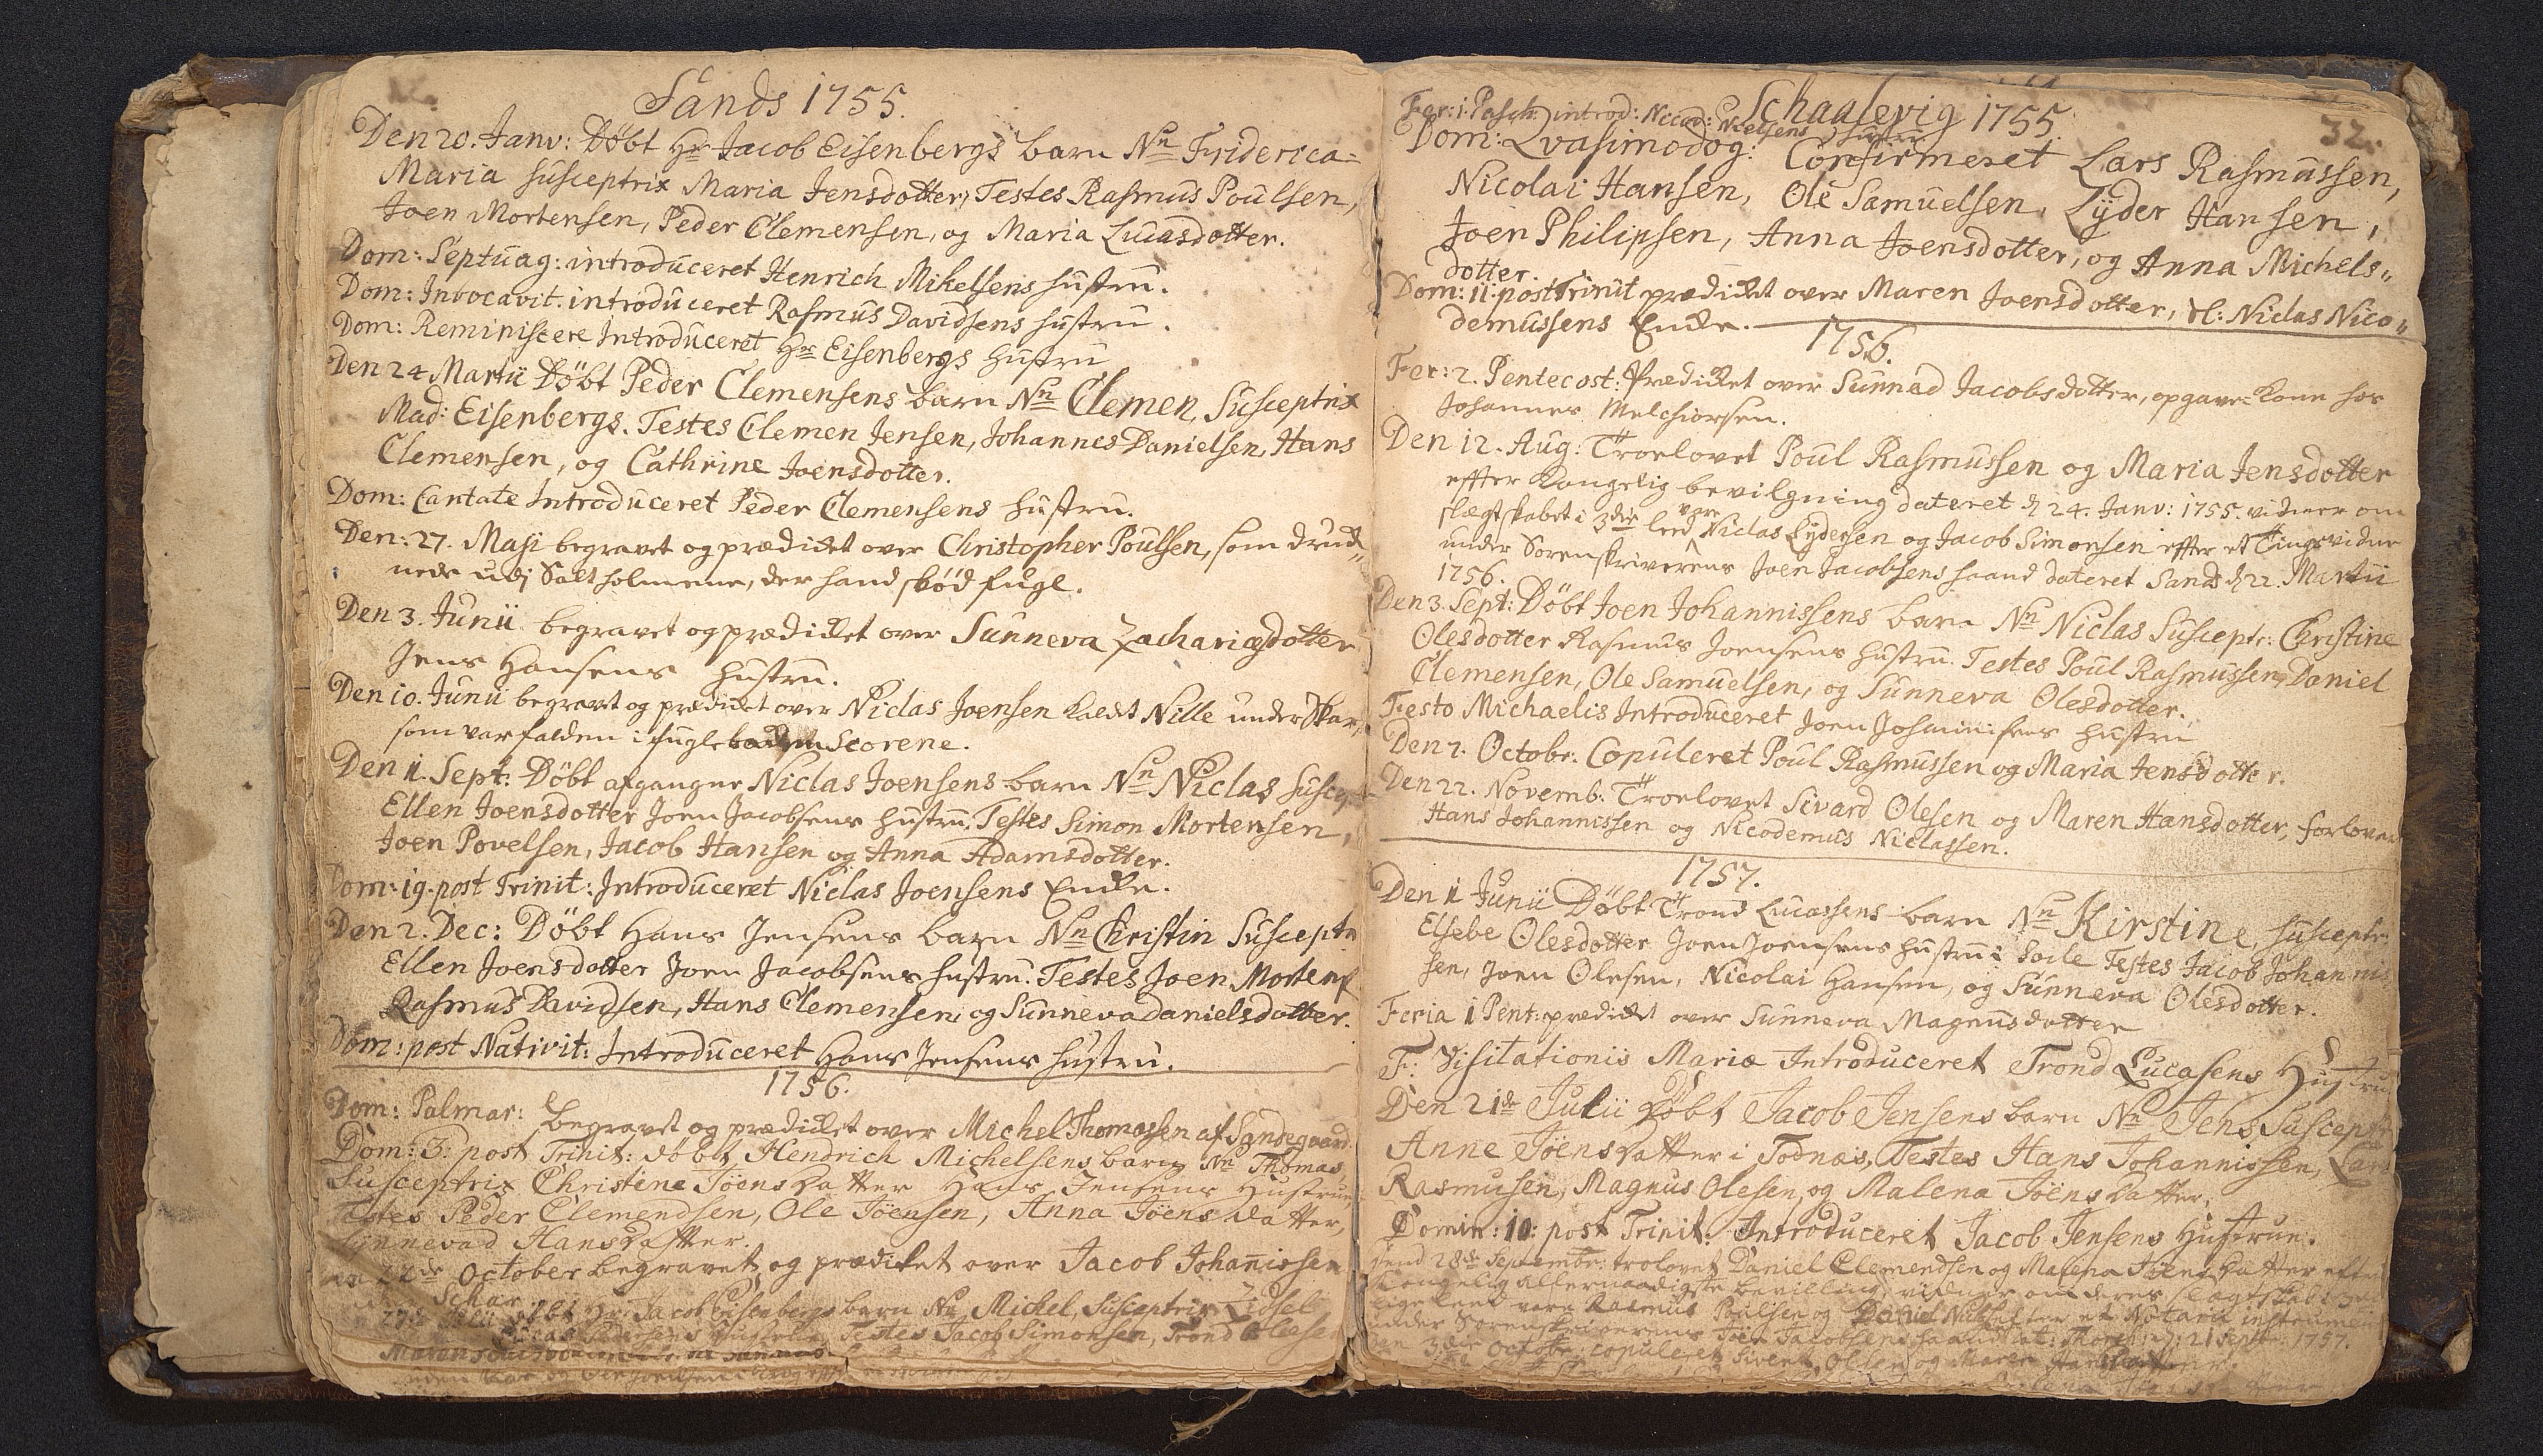 Sands 1755.
Den 20. Janv: Döbt Hr Jacob Eisenbergs barn Nn Friderica=
Maria susceptrix Maria Jensdotter, Testes Rasmus Poulsen,
Joen Mortensen, Peder Clemensen, og Maria Lucasdotter.
Dom: Septuag: introduceret Henrich Mikelsens hustru.
Dom: Invocavit: introduceret Rasmus Davidsens hustru.
Dom: Reminiscere Introduceret Hr Eisenbergs hustru
Den 24 Martii Döbt Peder Clemensens barn Nn Clemen, Susceptrix
Mad: Eisenbergs. Testes Clemen Jensen, Johannes Danielsen, Hans
Clemensen, og Cathrine Joensdotter.
Dom: Cantate Introduceret Peder Clemensens hustru.
Den: 27. Maji begravet og prædicket over Christopher Poulsen, som druck„
nede udj Saltholmene, der hand sköd fugl.
Den 3. Junii begravet og prædicket over Sunneva Zachariædotter
Jens Hansens hustru.
Den 10. Junii begravet og prædicket over Niclas Joensen kaldet Nille under Skar,
som var falden i fugle Scorene.
Den 11. Sept: Döbt afgangne Niclas Joensens barn Nn Niclas Suscep
Ellen Joensdotter Joen Jacobsens hustru. Testes Simon Mortensen,
Joen Povelsen, Jacob Hansen og Anna Adamsdotter.
Dom: 19. post Trinit: Introduceret Niclas Joensens Encke.
Den 2. Dec: Döbt Hans Jensens barn Nn Christin Susceptr
Ellen Joensdotter Joen Jacobsens hustru. Testes Joen Mortens
Rasmus Davidsen, Hans Clemensen, og Sunneva danielsdotter.
Dom: post Nativit: Introduceret Hans Jensens hustru.
1756.
Dom: Palmar: begravet og prædicket over Michel Thomassen af Sandegaard.
Dom: 3: post Trinit: döbt Hendrich Michelsens barn Nn Thomas
Susceptrix Christine Töens datter Hans Jensens Hustrue,
Testes Peder Clemendsen, Ole Jöensen, Anna Jöens datter,
Synnevad Hans datter.
22de October begravet og prædicket over Jacob Johanissen
Skar.
27de döbt Hr Jacob Eisenbergs barn Nn Michel, Susceptrix Zidsel
Testes Jacob Simonsen, Trond Olesen
32.
Schaalevig 1755.
Fer: 1. Pasch: introd: Nicod: Nielsens hustru
Dom: Qvasimodog: Confirmeret Lars Rasmussen,
Nicolai Hansen, Ole Samuelsen, Lÿder Hansen,
Joen Philipsen, Anna Joensdotter, og Anna Michels„
dotter.
Dom: 11. post Trinit prædicket over Maren Joensdotter, Sl: Niclas Nico„
demussens Encke.
1756.
Fer: 2. Pentecost: Prædicket over Sunnad Jacobsdotter, opgave=kone hos
Johannes Melchiorsen.
Den 12. Aug: Troelovet Poul Rasmussen og Maria Jensdotter
effter Kongelig bevilgning dateret d 24. Janv: 1755. vidner om
slægtskabet i 3die leed vare Niclas Lÿdersen og Jacob Simonsen effter et Tingsvidne
under Sorenskriverens Joen Jacobsens haand dateret Sand d 22. Martii
1756.
Den 3. Sept: Döbt Joen Johannissens barn Nn Niclas Susceptr: Christine
Olesdotter Rasmus Joensens hustru. Testes Poul Rasmussen, Daniel
Clemensen, Ole Samuelsen, og Sunneva Olesdotter.
Festo Michaelis Introduceret Joen Johannisens hustru
Den 7. Octobr: Copuleret Poul Rasmussen og Maria Jensdotter.
Den 22. Novemb: Troelovet Sivard Olesen og Maren Hansdotter, forlover
Hans Johannissen og Nicodemus Niclassen.
1757.
Den 1 Junii Döbt Trond Lucassens barn Nn Kirstine, susceptr:
Elsebe Olesdotter Joen Joensens hustru i Soile Testes Jacob Johannis
sen, Joen Olesen, Nicolai Hansen, og Sunneva Olesdotter.
Feria 1 Pent: prædicket over Sunneva Magnusdotter
F: Visitationis Mariæ Introduceret Trond Lucasens Hustru
Den 21de Julii Döbt Jacob Jensens barn Nn Jens Susceptr
Anne Jöens datter i Todnæs, Testes Hans Johannissen, Lars
Rasmusen, Magnus Olesen, og Malena Jöens datter.
Domin: 10: post Trinit: Introduceret Jacob Jensens Hustrue.
28de Septembr: trolovet Daniel Clemendsen og Malena Jöens datter efter
Kongelig allernaadigste bevilling, vidner om deres slægtskab i 3die
vare Rasmus Poulsen og Daniel Niels: efter et Notarii instrument
under Sorenskriverens Joen Jacobsens haand dat: 21 Septbr: 1757.
Den 3die Octobr: copuleret Sivert Olsen og Maren Hans datter.